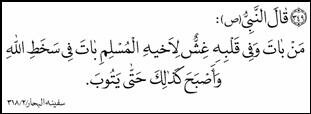 ﴿٣٤٩﴾ قٰالَ النَّبِيُّ (ص):
مَنْ بٰاتَ وَفِى قَلْبِهِ غِشٌّ لِاَخيهِ الْمُسْلِمِ بٰاتَ فِى سَخَطِ اللهِ
وَاَصْبَحَ كَذٰلِكَ حَتّٰى يَتُوبَ.
سفينه البحار/٢/٣١٨